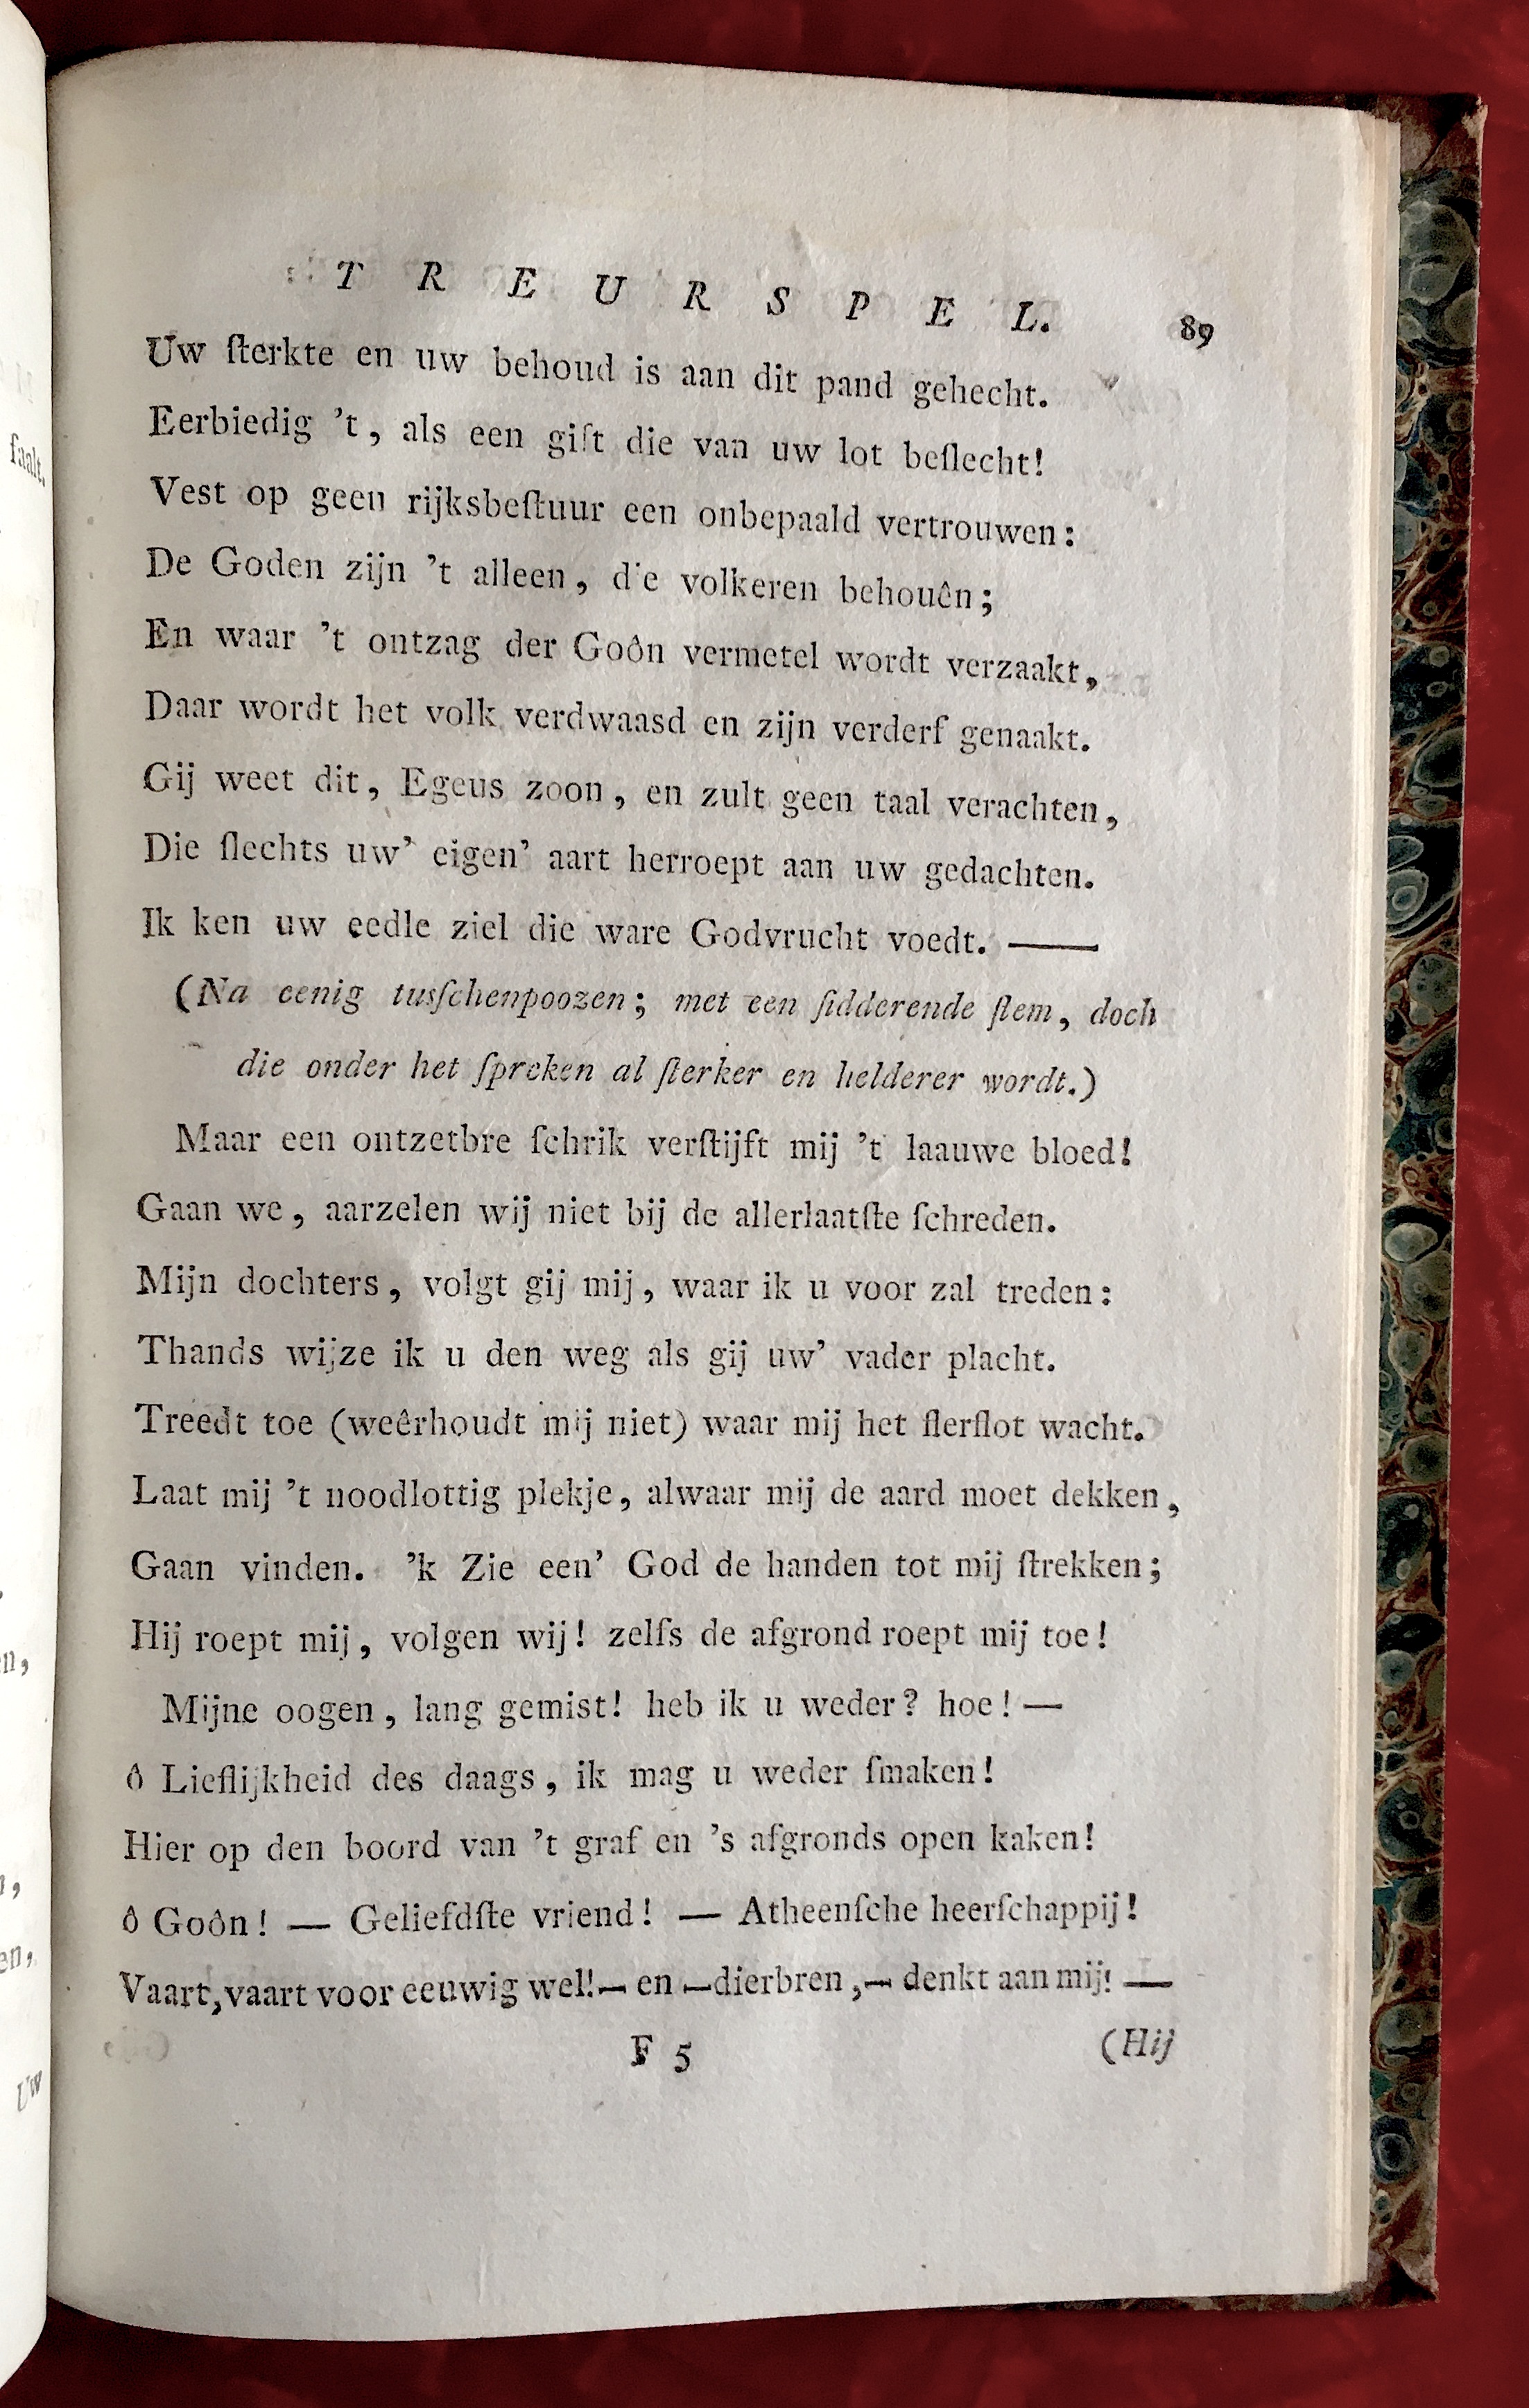 TREURSPEL. 89
Uw ſterkte en uw behoud is aan dit pand gehecht.
Eerbiedig 't, als een gift die van uw lot beſlecht!
Vest op geen rijksbeſtuur een onbepaald vertrouwen:
De Goden zijn 't alleen, die volkeren behouên;
En waar 't ontzag der Goôn vermetel wordt verzaakt,
Daar wordt het volk verdwaasd en zijn verderf genaakt.
Gij weet dit, Egeus zoon, en zult geen taal verachten,
Die ſlechts uw' eigen' aart herroept aan uw gedachten.
Ik ken uw eedle ziel die ware Godvrucht voedt. ——
(Na eenig tusſchenpoozen; met een ſidderende ſtem, doch
die onder het ſpreken al ſterker en helderer wordt.)
Maar een ontzetbre ſchrik verſtijft mij 't laauwe bloed!
Gaan we, aarzelen wij niet bij de allerlaatſte ſchreden.
Mijn dochters, volgt gij mij, waar ik u voor zal treden:
Thands wijze ik u den weg als gij uw' vader placht.
Treedt toe (weêrhoudt mij niet) waar mij het ſterſlot wacht.
Laat mij 't noodlottig plekje, alwaar mij de aard moet dekken,
Gaan vinden. 'k Zie een' God de handen tot mij ſtrekken;
Hij roept mij, volgen wij! zelfs de afgrond roept mij toe!
Mijne oogen, lang gemist! heb ik u weder? hoe! —
ô Lieflijkheid des daags, ik mag u weder ſmaken!
Hier op den boord van 't graf en 's afgronds open kaken!
ô Goôn! — Geliefdſte vriend! — Atheenſche heerſchappij!
Vaart, vaart voor eeuwig wel! — en — dierbren, — denkt aan mij! —
F 5 (Hij
faalt.
n,
n,
en,
Uw